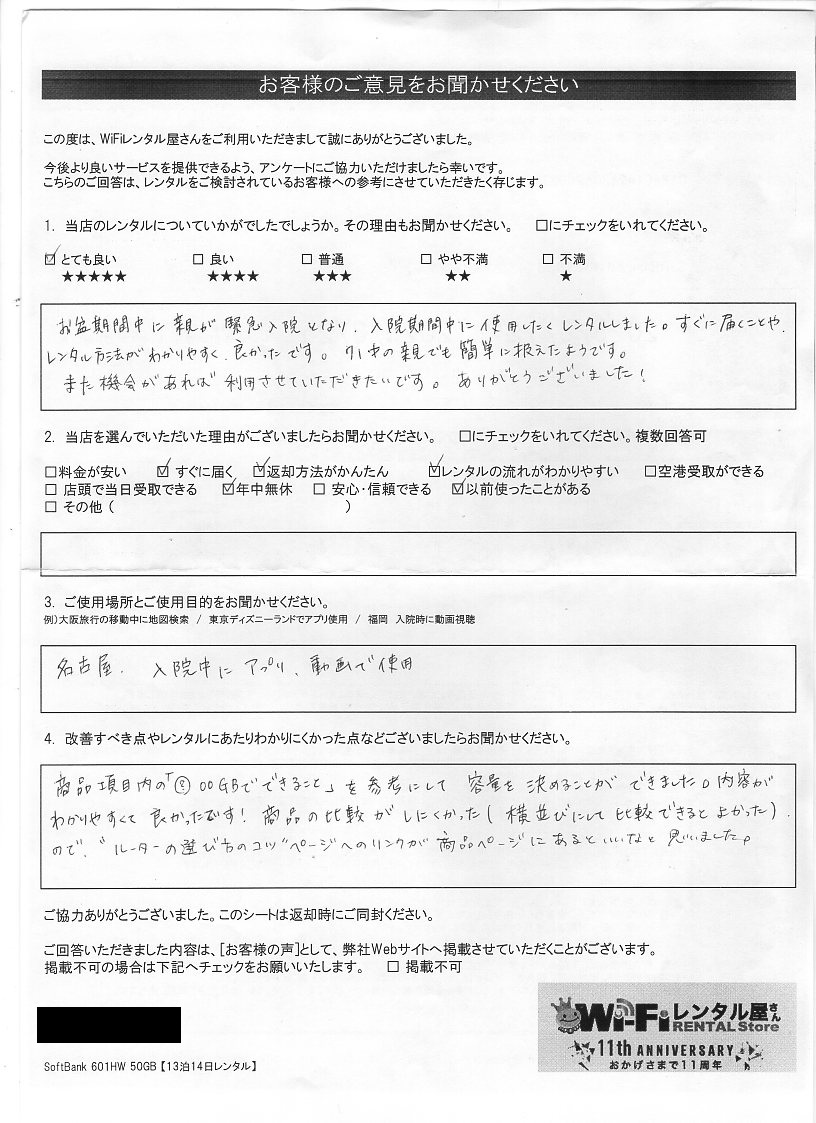 お客様のご意見をお聞かせください
この度は、WiFiレンタル屋さんをご利用いただきまして誠にありがとうございました。
今後より良いサービスを提供できるよう、アンケートにご協力いただけましたら幸いです。
こちらのご回答は、レンタルをご検討されているお客様への参考にさせていただきたく存じます。
1. 当店のレンタルについていかがでしたでしょうか。その理由もお聞かせください。 □にチェックをいれてください。
☑ とても良い □ 良い □ 普通 □ やや不満 □ 不満
★★★★★ ★★★★ ★★★ ★★ ★
お盆期間中に親が緊急入院となり、入院期間中に使用したくレンタルしました。すぐに届くことや、
レンタル方法がわかりやすく、良かったです。70代の親でも簡単に扱えたようです。
また機会があれば利用させていただきたいです。ありがとうございました!
2. 当店を選んでいただいた理由がございましたらお聞かせください。 □にチェックをいれてください。複数回答可
□料金が安い ☑ すぐに届く ☑返却方法がかんたん ☑レンタルの流れがわかりやすい □空港受取ができる
□ 店頭で当日受取できる ☑年中無休 □ 安心・信頼できる ☑以前使ったことがある
□ その他 ( )
3. ご使用場所とご使用目的をお聞かせください。
例)大阪旅行の移動中に地図検索 / 東京ディズニーランドでアプリ使用 / 福岡 入院時に動画視聴
名古屋、入院中にアプリ、動画で使用
4. 改善すべき点やレンタルにあたりわかりにくかった点などございましたらお聞かせください。
商品項目内の「 00GBでできること」を参考にして 容量を決めることができました。内容が
わかりやすくて良かったです! 商品の比較がしにくかった(横並びにして比較できるとよかった)
ので、"ルーターの選び方のコツ"ページへのリンクが商品ページにあるといいなと思いました。
ご協力ありがとうございました。このシートは返却時にご同封ください。
ご回答いただきました内容は、[お客様の声]として、弊社Webサイトへ掲載させていただくことがございます。
掲載不可の場合は下記へチェックをお願いいたします。 □ 掲載不可
Wi-Fiレンタル屋さん
RENTAL Store
11th ANNIVERSARY
おかげさまで11周年
SoftBank 601HW 50GB【13泊14日レンタル】